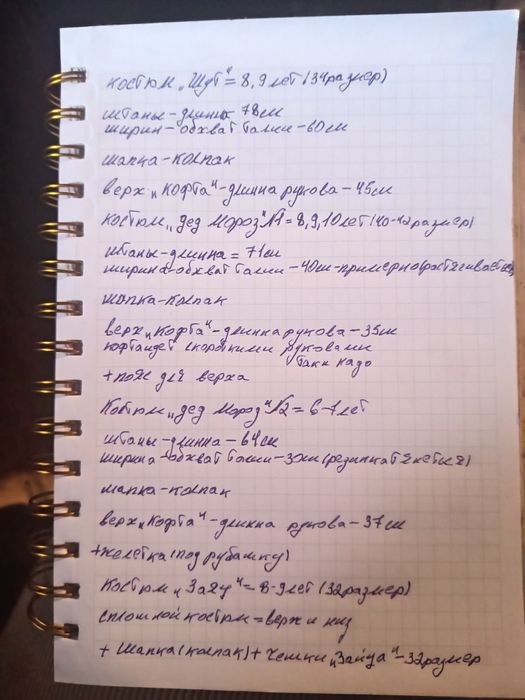 костюм „Шут“ = 8,9 лет (34 размер)
штаны - длинна 78см
ширин - обхват талии - 60см
шапка - колпак
верх „кофта“ - длинна рукова - 45см
костюм „дед Мороз“ №1 = 8,9,10 лет (40-42 размер)
штаны - длинна = 71см
ширина - обхват талии - 40см - примерно (растягивается)
шапка - колпак
верх „кофта“ - длинна рукова - 35см
кофта идет с короткими руковами
так и надо
+ пояс для верха
Костюм „дед Мороз“ №2 = 6-7 лет
штаны - длинна - 64см
ширина - обхват талии - 30см (резинка тянеться)
шапка - колпак
верх „кофта“ - длинна рукова - 37см
+ желетка (под рубашку)
Костюм „Заяц“ = 8-9 лет (32 размер)
сплошной костюм = верх и низ
+ Шапка (колпак) + чешки „Зайца“ - 32 размер